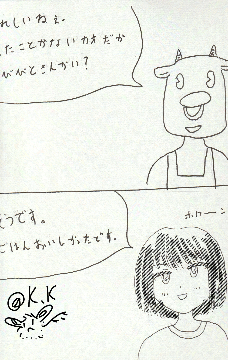 れしいねぇ。
したことがないカオだか
びがとさんかい?
ホワーン
そうです。
ごはんおいしかったです。
@K.K